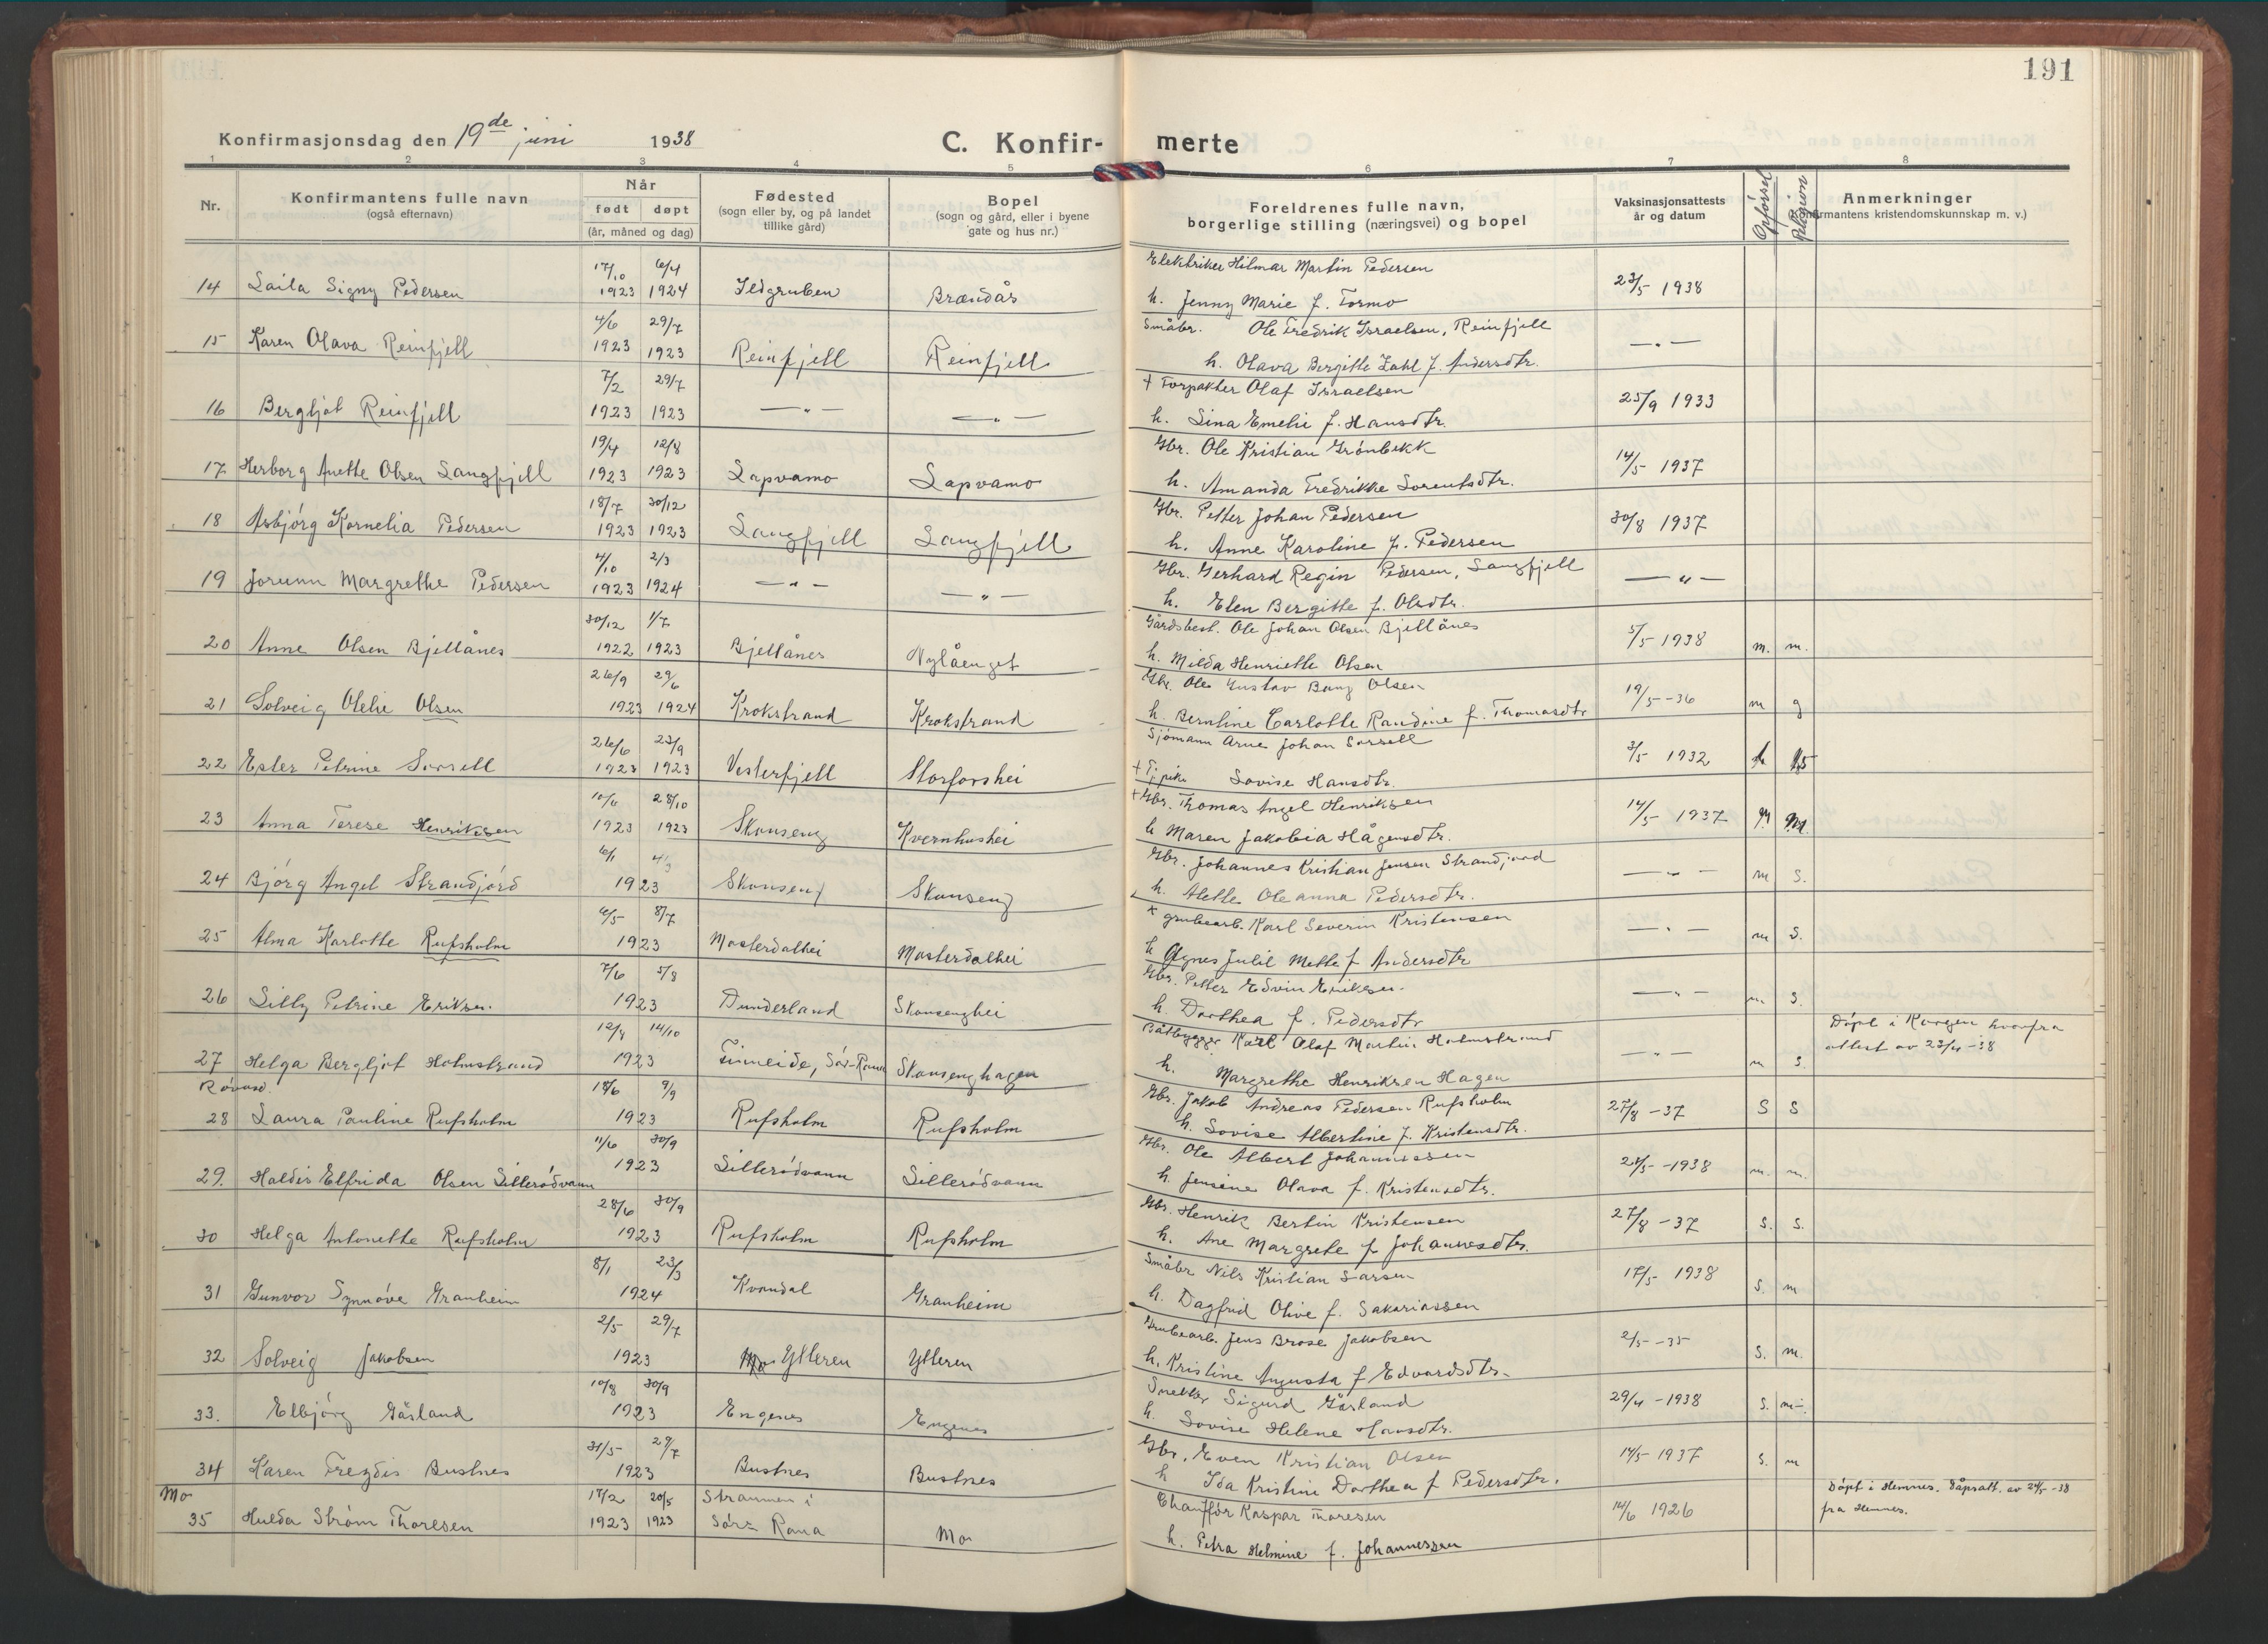 191
Konfirmasjonsdag den 19de juni 1938
C. Konfir- merte
1 2 3 4 5 6 7 8
Nr. Konfirmantens fulle navn (også efternavn) Når født døpt (år, måned og dag) Fødested (sogn eller by, og på landet tillike gård) Bopel (sogn og gård, eller i byene gate og hus nr.) Foreldrenes fulle navn, borgerlige stilling (næringsvei) og bopel Vaksinasjonsattests år og datum Opførsel Religion Anmerkninger (Konfirmantens kristendomskunnskap m. v.)
14 Laila Signy Pedersen 17/10 1923 6/4 1924 Ildgruben Brændås Elektriker Hilmar Martin Pedersen 23/5 1938
h. Jenny Marie f. Tormo
15 Karen Olava Reinfjell 4/6 1923 29/7 1923 Reinfjell Reinfjell Småbr. Ole Fredrik Israelsen, Reinfjell — " —
h. Olava Bergitte Zahl f. Andersdtr.
16 Bergljot Reinfjell 7/2 1923 29/7 1923 — " — — " — + Forpakter Olaf Israelsen 25/9 1933
h. Lina Emelie f. Hansdtr.
17. Herborg Anette Olsen Langfjell 19/4 1923 12/8 1923 Lapvamo Lapvamo Gbr. Ole Kristian Grønbekk 14/5 1937
h. Amanda Fredrikke Lorentsdtr.
18 Asbjørg Kornelia Pedersen 18/7 1923 30/12 1923 Langfjell Langfjell Gbr. Petter Johan Pedersen 30/8 1937
h. Anne Karoline f. Pedersen
19 Jorunn Margrethe Pedersen 4/10 1923 2/3 1924 — " — — " — Gbr. Gerhard Regin Pedersen, Langfjell — " —
h. Elen Bergitte f. Olsdtr.
20 Anne Olsen Bjellånes 30/12 1922 1/7 1923 Bjellånes Nylåenget Gårdsbest. Ole Johan Olsen Bjellånes 5/5 1938 m. m.
h. Milda Henriette Olsen
21 Solveig Olelie Olsen 26/9 1923 29/6 1924 Krokstrand Krokstrand Gbr. Ole Gustav Bang Olsen 19/5 -36 m g
h. Berntine Carlotte Raudine f. Thomasdtr
22 Ester Petrine Sorsell 26/6 1923 23/9 1923 Vesterfjell Storforshei Sjømann Arne Johan Sorsell 3/5 1932
+ Tj. pike Lovise Hansdtr.
23 Anna Terese Henriksen 10/6 1923 28/10 1923 Skonseng Kvernhushei + Gbr. Thomas Angel Henriksen 14/5 1937 M M.
h Maren Jakobia Hågensdtr.
24 Bjørg Angel Strandjord 6/1 4/3 1923 Skonseng Skonseng Gbr. Johannes Kristian Jensen Strandjord — " — m s.
h. Alette Oleanna Pedersdtr.
25 Alma Karlotte Rufsholm 6/5 8/7 1923 Mosterdalhei Mosterdalhei + grubearb. Karl Severin Kristensen — " — m s.
h Agnes Julil Mette f Andersdtr
26 Lilly Petrine Eriksen. 7/6 5/8 1923 Dunderland Skonsenghei Gbr. Petter Edvin Eriksen. — " — m s.
h. Dorthea f. Pedersdtr
27 Helga Bergljot Holmstrand 12/8 14/10 1923 Finneide, Sør-Rana Skonsenghagen Båtbygger Karl Olaf Martin Holmstrand — " — m s. Døpt i Korgen hvorfra
h. Margrethe Henriksen Hagen attest av 23/4 -38
28 Laura Pauline Rufsholm 18/6 9/9 1923 Rufsholm Rufsholm Gbr. Jakob Andreas Pedersen Rufsholm 27/8 -37 s s
h. Lovise Albertine f. Kristensdtr.
29. Haldis Elfrida Olsen Litlerødvann 11/6 30/9 1923 Litlerødvann Litlerødvann Gbr. Ole Albert Johannessen 21/5 -1938 m. m.
h. Jensine Olava f. Kristensdtr.
30 Helga Antonette Rufsholm 28/6 30/9 1923 Rufsholm Rufsholm Gbr. Henrik Bertin Kristensen 27/8 -37 s. s.
h. Ane Margrete f Johannesdtr.
31 Gunvor Synnøve Granheim 8/1 23/3 1924 Kvandal Granheim Småbr Nils Kristian Larsen 17/5 1938 s. m
h. Dagfrid Olive f. Sakariassen
32 Solveig Jakobsen 2/5 29/7 1923 Ytteren Ytteren Grubearb. Jens Brose Jakobsen 2/5 -35 s. m.
h. Kristine Augusta f Edvardsdtr.
33. Elbjørg Gåsland 10/8 30/9 1923 Engenes Engenes Snekker Sigurd Gåsland 29/4 -1938 s. m-.
h. Lovise Helene Hansdtr.
34 Karen Frezdis Bustnes 31/5 29/7 1923 Bustnes Bustnes Gbr. Even Kristian Olsen 14/5 1937 s. m
h Ida Kristine Dorthea f Pedersdtr.
Mo
35 Hulda Strøm Thoresen 17/2 1923 20/5 1923 Straumen i Sør-Rana Mo Chauffør Kaspar Thoresen 14/6 1926 Døpt i Hemnes. Dåpsatt. av 24/5 -38
h. Petra Helmine f. Johannessen fra Hemnes.